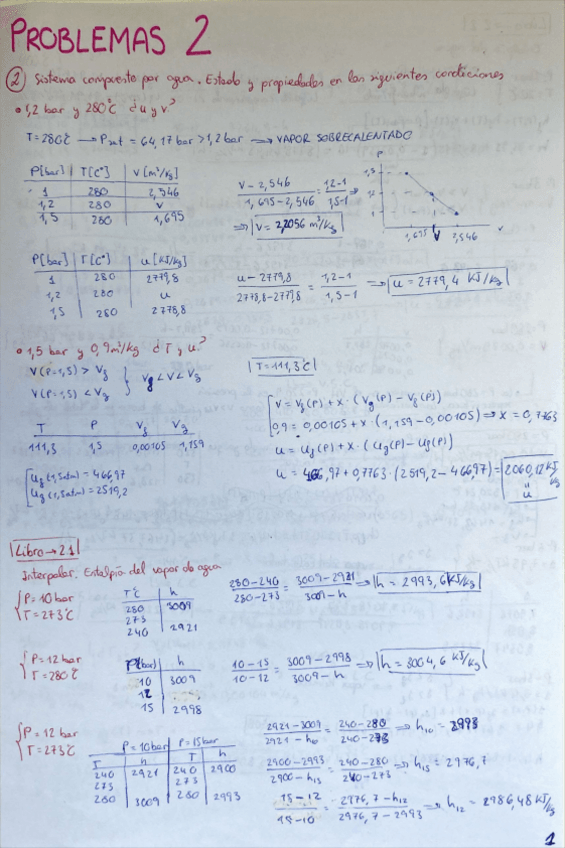 PROBLEMAS 2
② Sistema compuesto por agua. Estado y propiedades en las siguientes condiciones
• 1,2 bar y 280°C ¿u y v?
T=280°C → Psat = 64,17 bar > 1,2 bar ⇒ VAPOR SOBRECALENTADO
P[bar] T[C°] V[m³/kg]
1 280 2,546
1,2 280 v
1,5 280 1,695
(v - 2,546)/(1,695 - 2,546) = (1,2-1)/(1,5-1)
⇒ |v = 2,2056 m³/kg|
P
v
1,695 v 2,546
P[bar] T[C°] u[KJ/kg]
1 280 2779,8
1,2 280 u
1,5 280 2778,8
(u - 2779,8)/(2778,8 - 2779,8) = (1,2-1)/(1,5-1) ⇒ |u = 2779,4 KJ/kg|
• 1,5 bar y 0,9 m³/kg ¿T y u?
|T=111,3°C|
V(P=1,5) > Vf
V(P=1,5) < Vg
Vf < V < Vg
T P Vf Vg
111,3 1,5 0,00105 1,159
V = Vf(P) + x · (Vg(P) - Vf(P))
0,9 = 0,00105 + x · (1,159 - 0,00105) ⇒ x = 0,7763
u = uf(P) + x · (ug(P) - uf(P))
u = 466,97 + 0,7763 · (2519,2 - 466,97) = |2060,12 KJ/kg|
u
uf(1,5atm) = 466,97
ug(1,5atm) = 2519,2
|Libro → 21|
Interpolar. Entalpía del vapor de agua
P = 10 bar
T = 273°C
T°C h
280 3009
273
240 2921
(280-240)/(280-273) = (3009-2921)/(3009-h) ⇒ |h = 2993,6 KJ/kg|
P = 12 bar
T = 280°C
P(bar) h
10 3009
12
15 2998
(10-15)/(10-12) = (3009-2998)/(3009-h) ⇒ |h = 3004,6 KJ/kg|
P = 12 bar
T = 273°C
P=10bar P=15bar
T h T h
240 2921 240 2900
273 273
280 3009 280 2993
(2921-3009)/(2921-h10) = (240-280)/(240-273) ⇒ h10 = 2993
(2900-2993)/(2900-h15) = (240-280)/(240-273) ⇒ h15 = 2976,7
(15-12)/(15-10) = (2976,7-h12)/(2976,7-2993) ⇒ h12 = 2986,48 KJ/kg
1